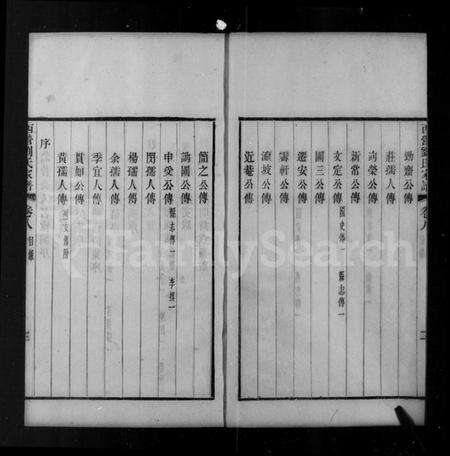 西營劉氏家譜 卷八
勁齋公傳
莊孺人傳
詢榮公傳
新常公傳
文定公傳 國史傳一 縣志傳一
圃三公傳
遷安公傳
霽軒公傳
近菴公傳
簡之公傳
詢圃公傳
申受公傳 縣志傳一 李撰一
閔孺人傳
楊孺人傳
余孺人傳
季宜人傳
貫如公傳
黃孺人傳
序
西營劉氏家譜 卷八 目錄 三
FamilySearch